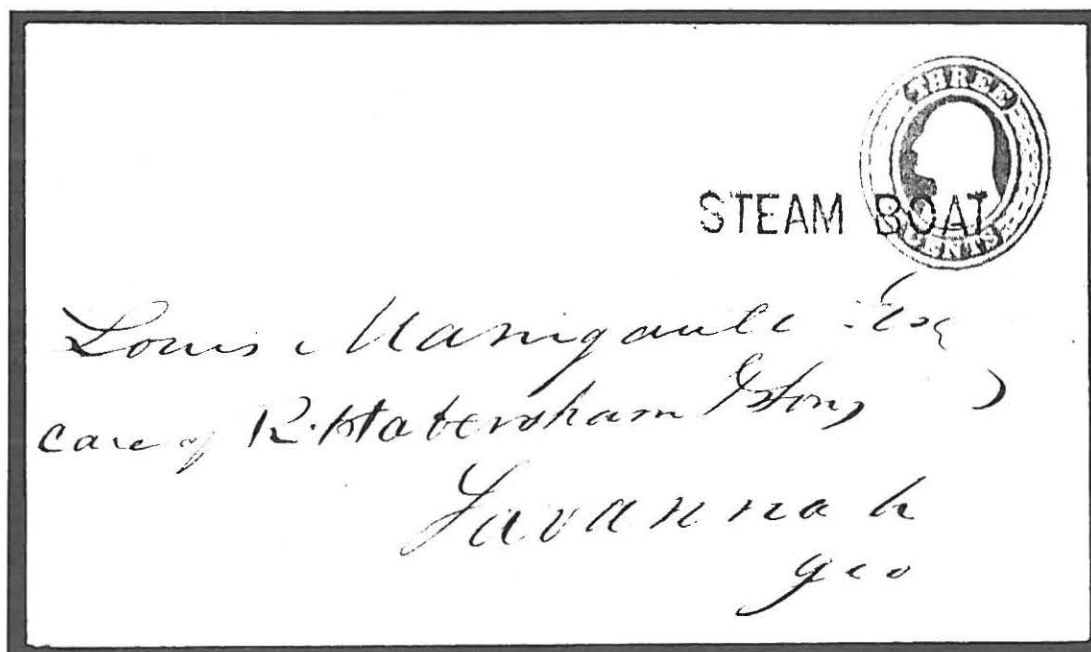 THREE
CENTS
STEAM BOAT
Louis Manigault Esq
care of R. Habersham & Son,
Savannah
Geo